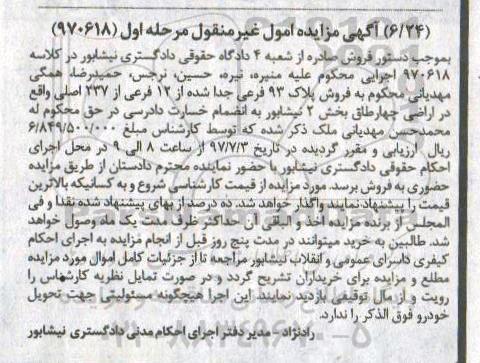 (۶/۲۴) آگهی مزایده اموال غیرمنقول مرحله اول (۹۷۰۶۱۸)
بموجب دستور فروش صادره از شعبه ۴ دادگاه حقوقی دادگستری نیشابور در کلاسه
۹۷۰۶۱۸ اجرایی محکوم علیه منیره، نیره، حسین، نرجس، حمیدرضا، همگی
مهدیانی محکوم به فروش پلاک ۹۳ فرعی جدا شده از ۱۲ فرعی از ۲۳۷ اصلی واقع
در اراضی چهارطاق بخش ۲ نیشابور به انضمام خسارت دادرسی در حق محکوم له
محمدحسن مهدیانی ملک ذکر شده که توسط کارشناس مبلغ ۶/۸۴۹/۵۰۰/۰۰۰
ریال ارزیابی و مقرر گردیده در تاریخ ۹۷/۷/۳ از ساعت ۸ الی ۹ در محل اجرای
احکام حقوقی دادگستری نیشابور با حضور نماینده محترم دادستان از طریق مزایده
حضوری به فروش برسد. مورد مزایده از قیمت کارشناسی شروع و به کسانیکه بالاترین
قیمت را پیشنهاد نمایند واگذار خواهد شد. ده درصد از بهای پیشنهاد شده نقدا و فی
المجلس از برنده مزایده اخذ و الباقی آن حداکثر ظرف مدت یک ماه وصول خواهد
شد. طالبین به خرید میتوانند در مدت پنج روز قبل از انجام مزایده به اجرای احکام
کیفری دادسرای عمومی و انقلاب نیشابور مراجعه تا از جزئیات کامل اموال مورد مزایده
مطلع و مزایده برای خریداران تشریح گردد و در صورت تمایل نظریه کارشناس را
رویت و از مال توقیفی بازدید نمایند. این اجرا هیچگونه مسئولیتی جهت تحویل
خودرو فوق الذکر را ندارد.
رادنژاد - مدیر دفتر اجرای احکام مدنی دادگستری نیشابور